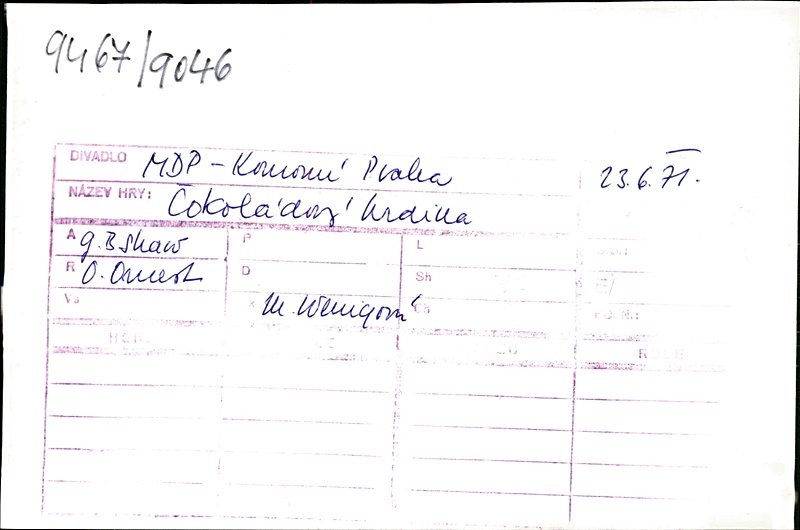 9467/9046
DIVADLO MDP - Komorní Praha 23.6.71.
NÁZEV HRY: Čokoládový hrdina
A G. B Shaw P L
R O. Ornest D Sh
Vs M. Wenigová
ROLE